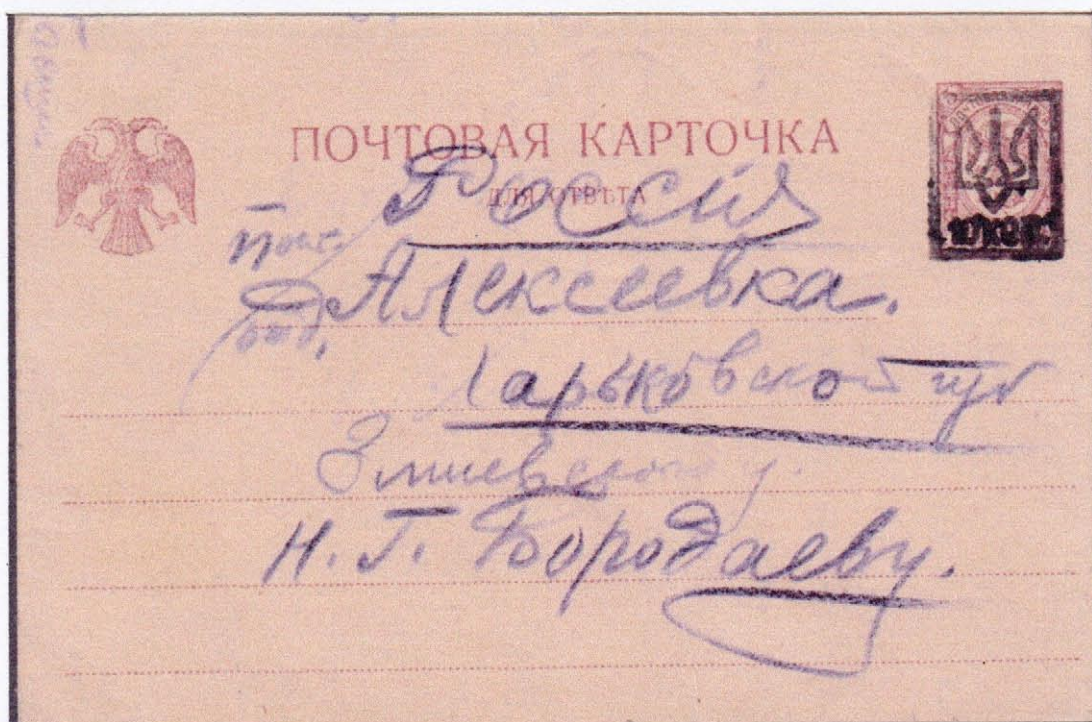 ПОЧТОВАЯ КАРТОЧКА
ДЛЯ ОТВѢТА
Россия
Почт.
отд.
Алексеевка.
Харьковской губ
Змиевского у.
Н. Г. Бородаеву.